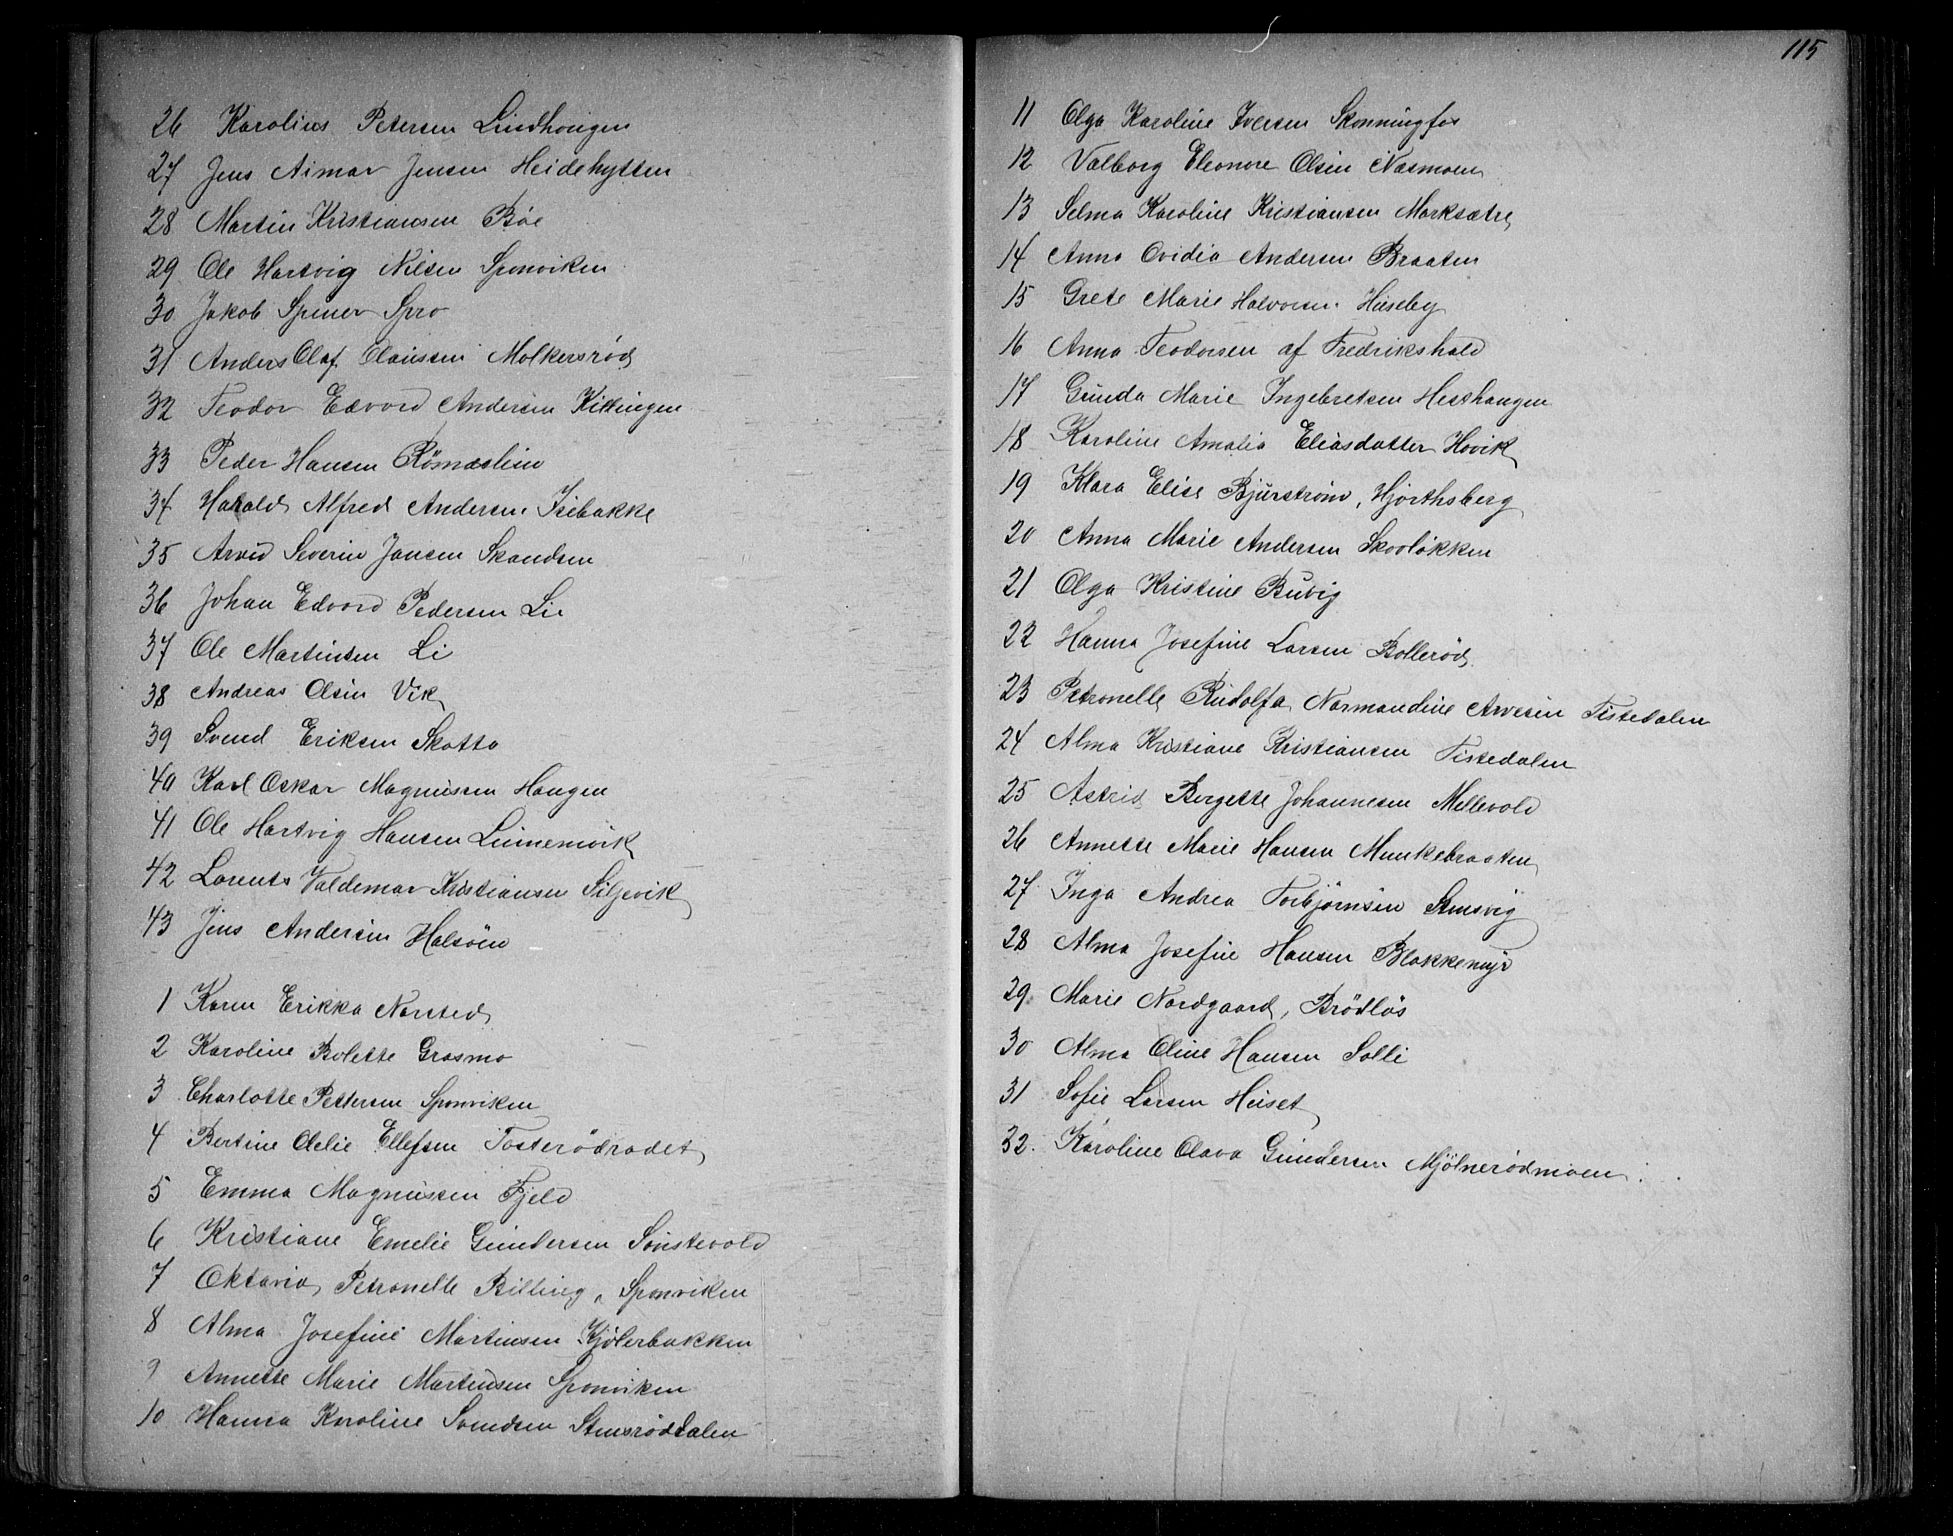 26 Karolius Petersen Lindhougen
27 Jens Aimar Jensen Heidehytten
28 Martin Kristiansen Böe
29 Ole Hartvig Nilsen Sponviken
30 Jakob Spro
31 Anders Olaf Olaussen Molkersrød
32 Teodor Edvard Andersen Killingen
33 Peder Hansen
34 Harald Alfred Andersen Isebakke
35 Arvid Severin Jansen Skandsen
36 Johan Edvard Pedersen Lie
37 Ole Martinsen Li
38 Andreas Olsen Vik
39 Svend Eriksen Skotto
40 Karl Oskar Magnussen Haugen
41 Ole Hartvig Hansen
42 Lorents Valdemar Kristiansen Siljevik
43 Jens Andersen Halsöen
1 Karen Erikka Norsted
2 Karoline Bolette Grasmo
3 Charlotte Pettersen Sponviken
4 Bertine Oelie Ellefsen Tosterödradet
5 Emma Magnussen Fjeld
6 Kristiane Emelie Gundersen Sönstevold
7 Oktavia Petronelle Billing, Sponviken
8 Alma Josefine Martinsen Kjølerbakken
9 Annette Marie Martinsen Sponviken
10 Hanna Karoline Svendsen Stensröddalen
115
11 Olga Karoline Iversen Skonningfos
12 Valborg Eleonore Olsen Næsmoen
13 Selma Karoline Kristiansen Marksætre
14 Anna Ovidia Andersen Braaten
15 Grete Marie Halvorsen Huseby
16 Anna Teodorsen af Fredrikshald
17 Gunda Marie Ingebretsen Hesthaugen
18 Karoline Amalia Eliasdatter Hovik
19 Klara Elise Bjurstrøm, Hjorthsberg
20 Anna Marie Andersen Skovløkken
21 Olga Kristine Buvig
22 Hanna Josefine Larsen Bollerød
23 Petronelle Rudolfa Normandine Arvesen Tistedalen
24 Alma Kristiane Kristiansen Tistedalen
25 Astrid Bergette Johannesen Mellevold
26 Annette Marie Hansen Munkebraaten
27 Inga Andrea Torbjørnsen Stensvig
28 Alma Josefine Hansen Blakkemyr
29 Marie Nordgaard, Brödlös
30 Alma Oline Hansen Solli
31 Sofie Larsen Huset
32. Karoline Olava Gundersen Mjölnerödmoen